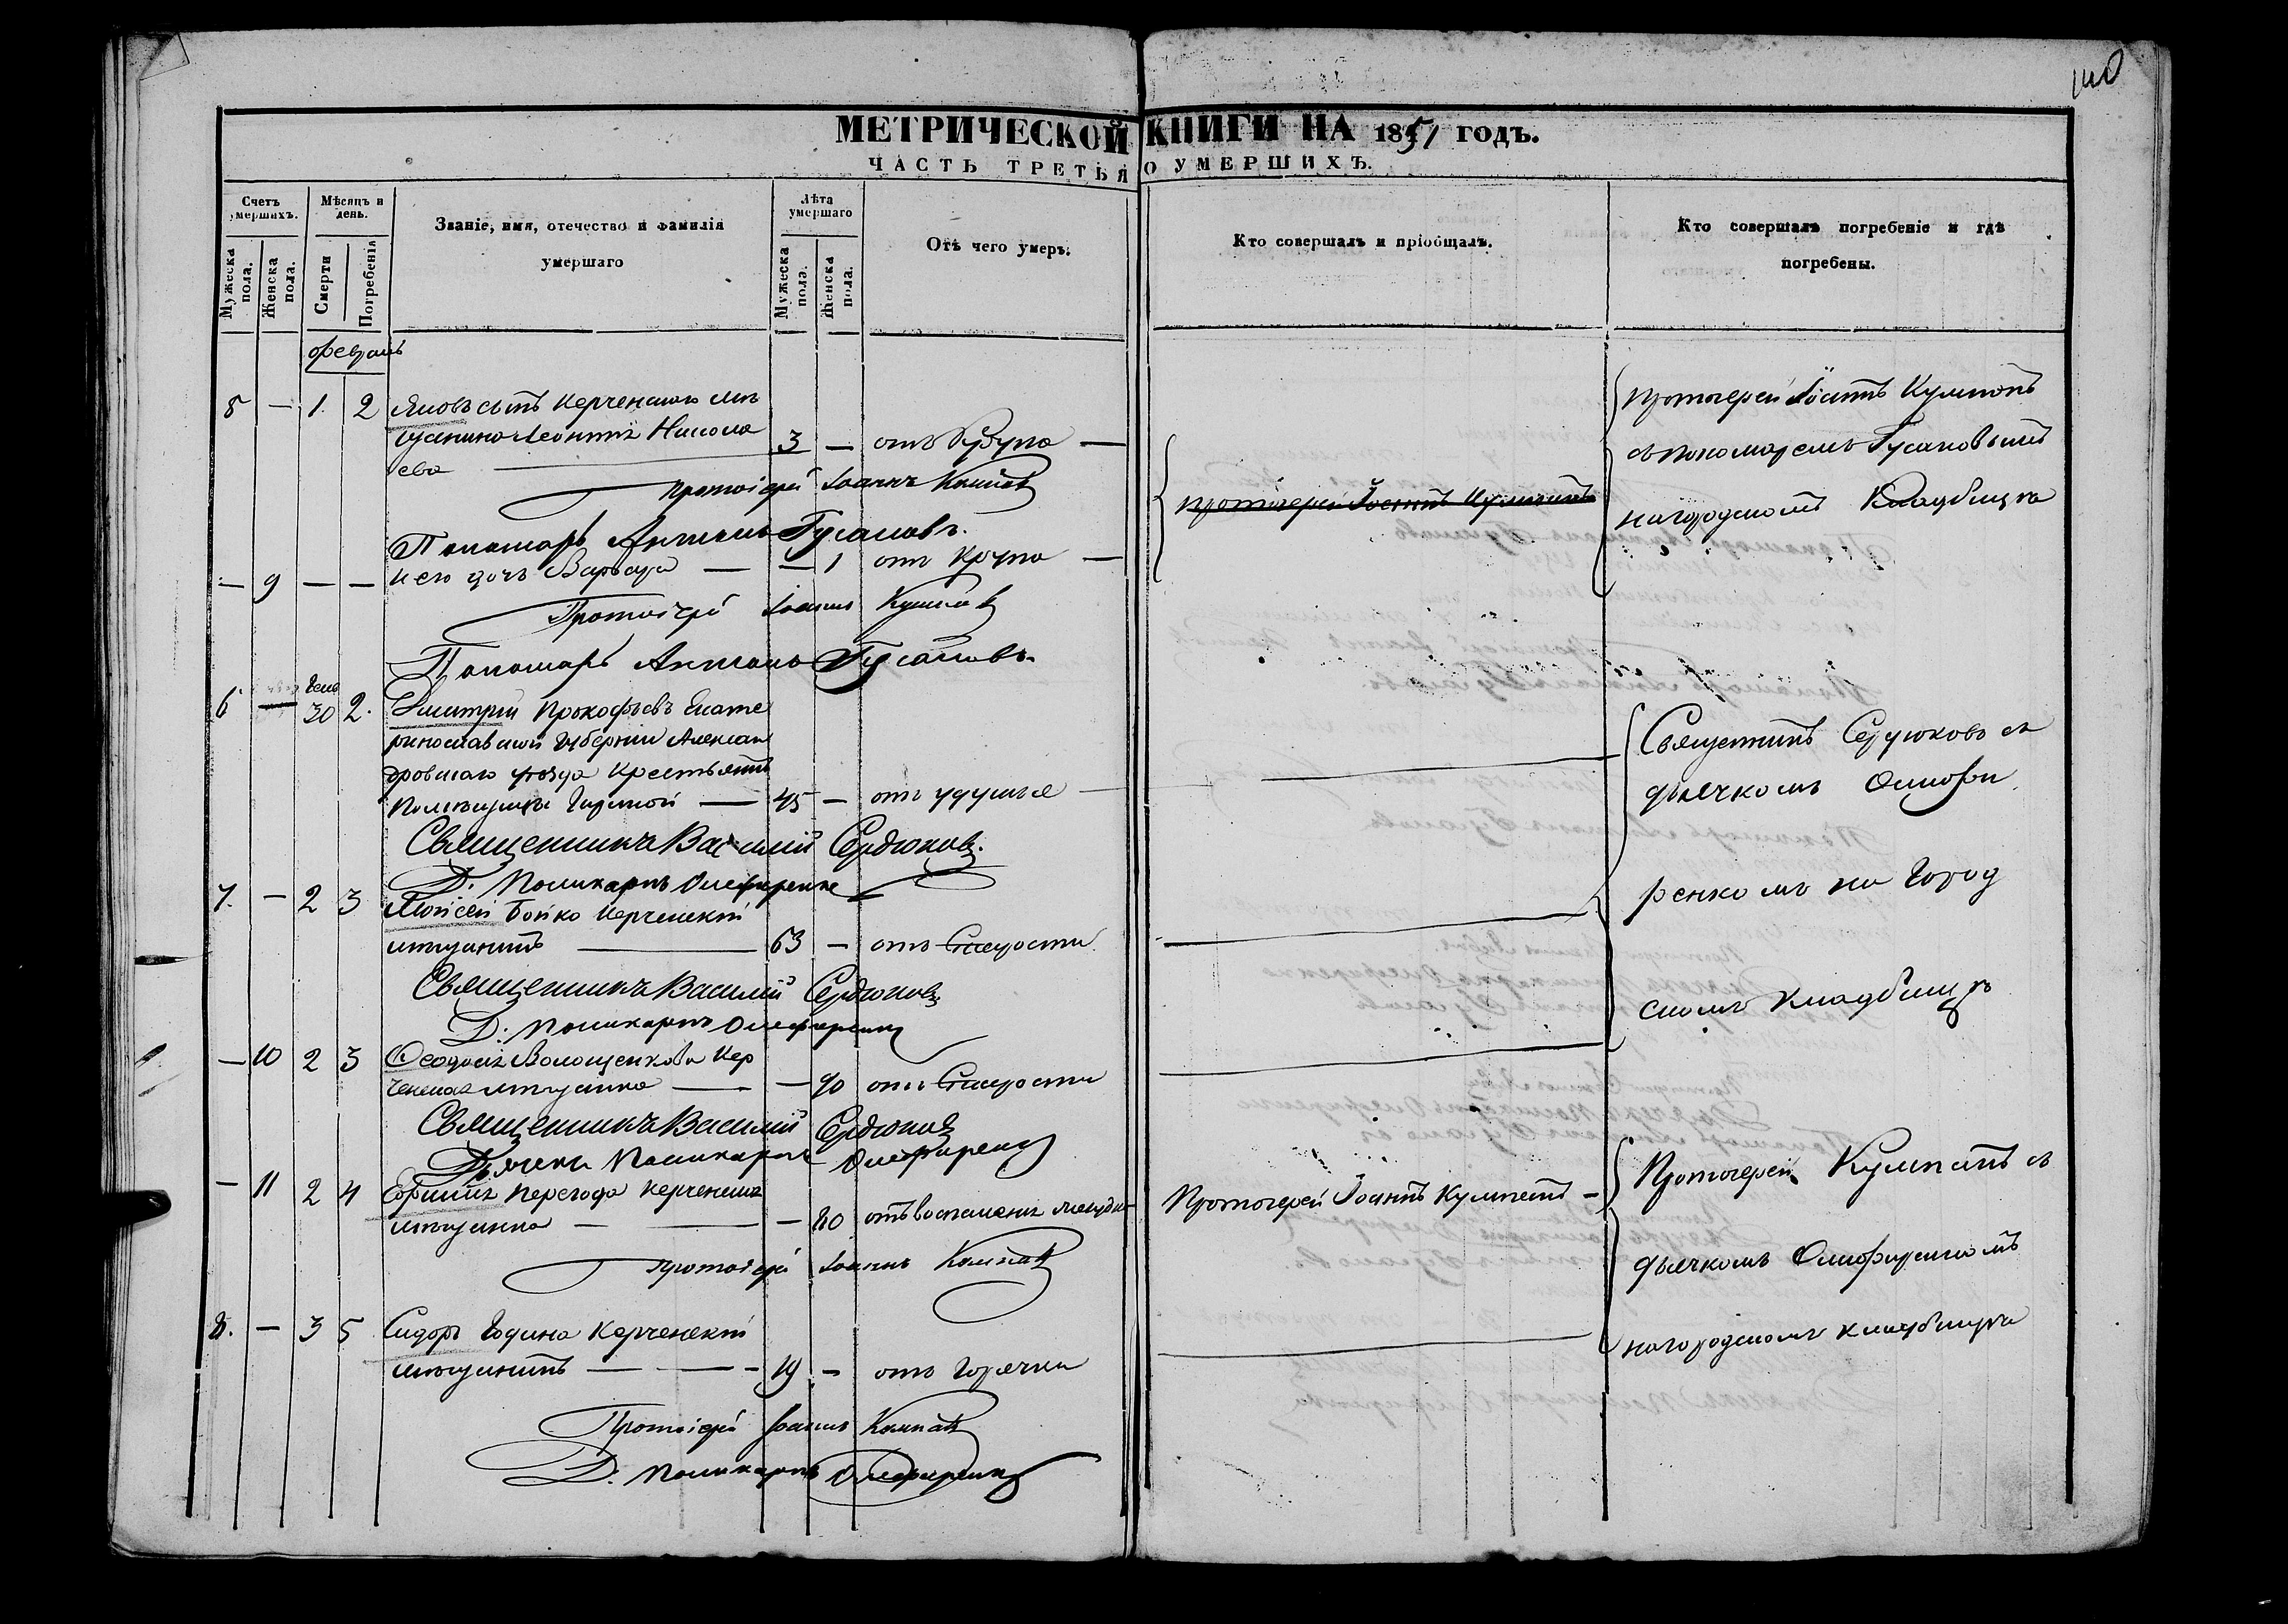 МЕТРИЧЕСКОЙ КНИГИ НА 1851 ГОДЪ.
ЧАСТЬ ТРЕТЬЯ О УМЕРШИХЪ.
Счетъ умершихъ.
Мужеска пола.
Женска пола.
Мѣсяцъ и день.
Смерти
Погребенія
Званіе, имя, отечество и фамилія
умершаго
Лѣта умершаго
Мужеска пола.
Женска пола.
Отъ чего умеръ.
Кто совершалъ и пріобщалъ.
Кто совершалъ погребеніе и гдѣ
погребены.
февраль
5 — 1. 2 Яковъ сынъ Керченскаго мѣ
щанина Леонтія Никола 3 — отъ Крупа —
ева
Протоіерей Іоаннъ Кумпанъ
Пономарь Антонъ Гусаковъ.
— 9 — — и его дочь Варвара — — 1 отъ Крупа —
Протоіерей Іоаннъ Кумпанъ
Пономарь Антонъ Гусаковъ.
Протоіерей Іоаннъ Кумпанъ
Протоіерей Іоаннъ Кумпанъ
съ пономаремъ Гусаковымъ
на городскомъ Кладбищѣ
6 — Генв 30 2. Дмитрій Прокофьевъ Екате
ринославской Губерніи Алексан
дровскаго уѣзда Крестьянинъ
Помѣщицы — 45 — отъ удушья —
Священникъ Василій Сердюковъ.
Д. Поликарпъ Олефиренко
Священникъ Сердюковъ съ
дьячкомъ Олифи
ренкомъ на Город
скомъ Кладбищѣ
7. — 2 3 Моисей Бойко Керченскій
мѣщанинъ — 63 — отъ Старости
Священникъ Василій Сердюковъ
Д. Поликарпъ Олефиренко
— 10 2 3 Феодосія Волощенкова Кер
ченская мѣщанка — — 90 отъ Старости
Священникъ Василій Сердюковъ
Дьячекъ Поликарпъ Олефиренко
— 11 2 4 Евфимія Перегода Керченская
мѣщанка — — 80 отъ воспаленія желудка
Протоіерей Іоаннъ Кумпанъ
Протоіерей Іоаннъ Кумпанъ —
Протоіерей Кумпанъ съ
дьячкомъ Олифиренкомъ
на городскомъ кладбищѣ
8. — 3 5 Сидоръ Година Керченскій
мѣщанинъ — 19 — отъ Горячки
Протоіерей Іоаннъ Кумпанъ
Д. Поликарпъ Олефиренко